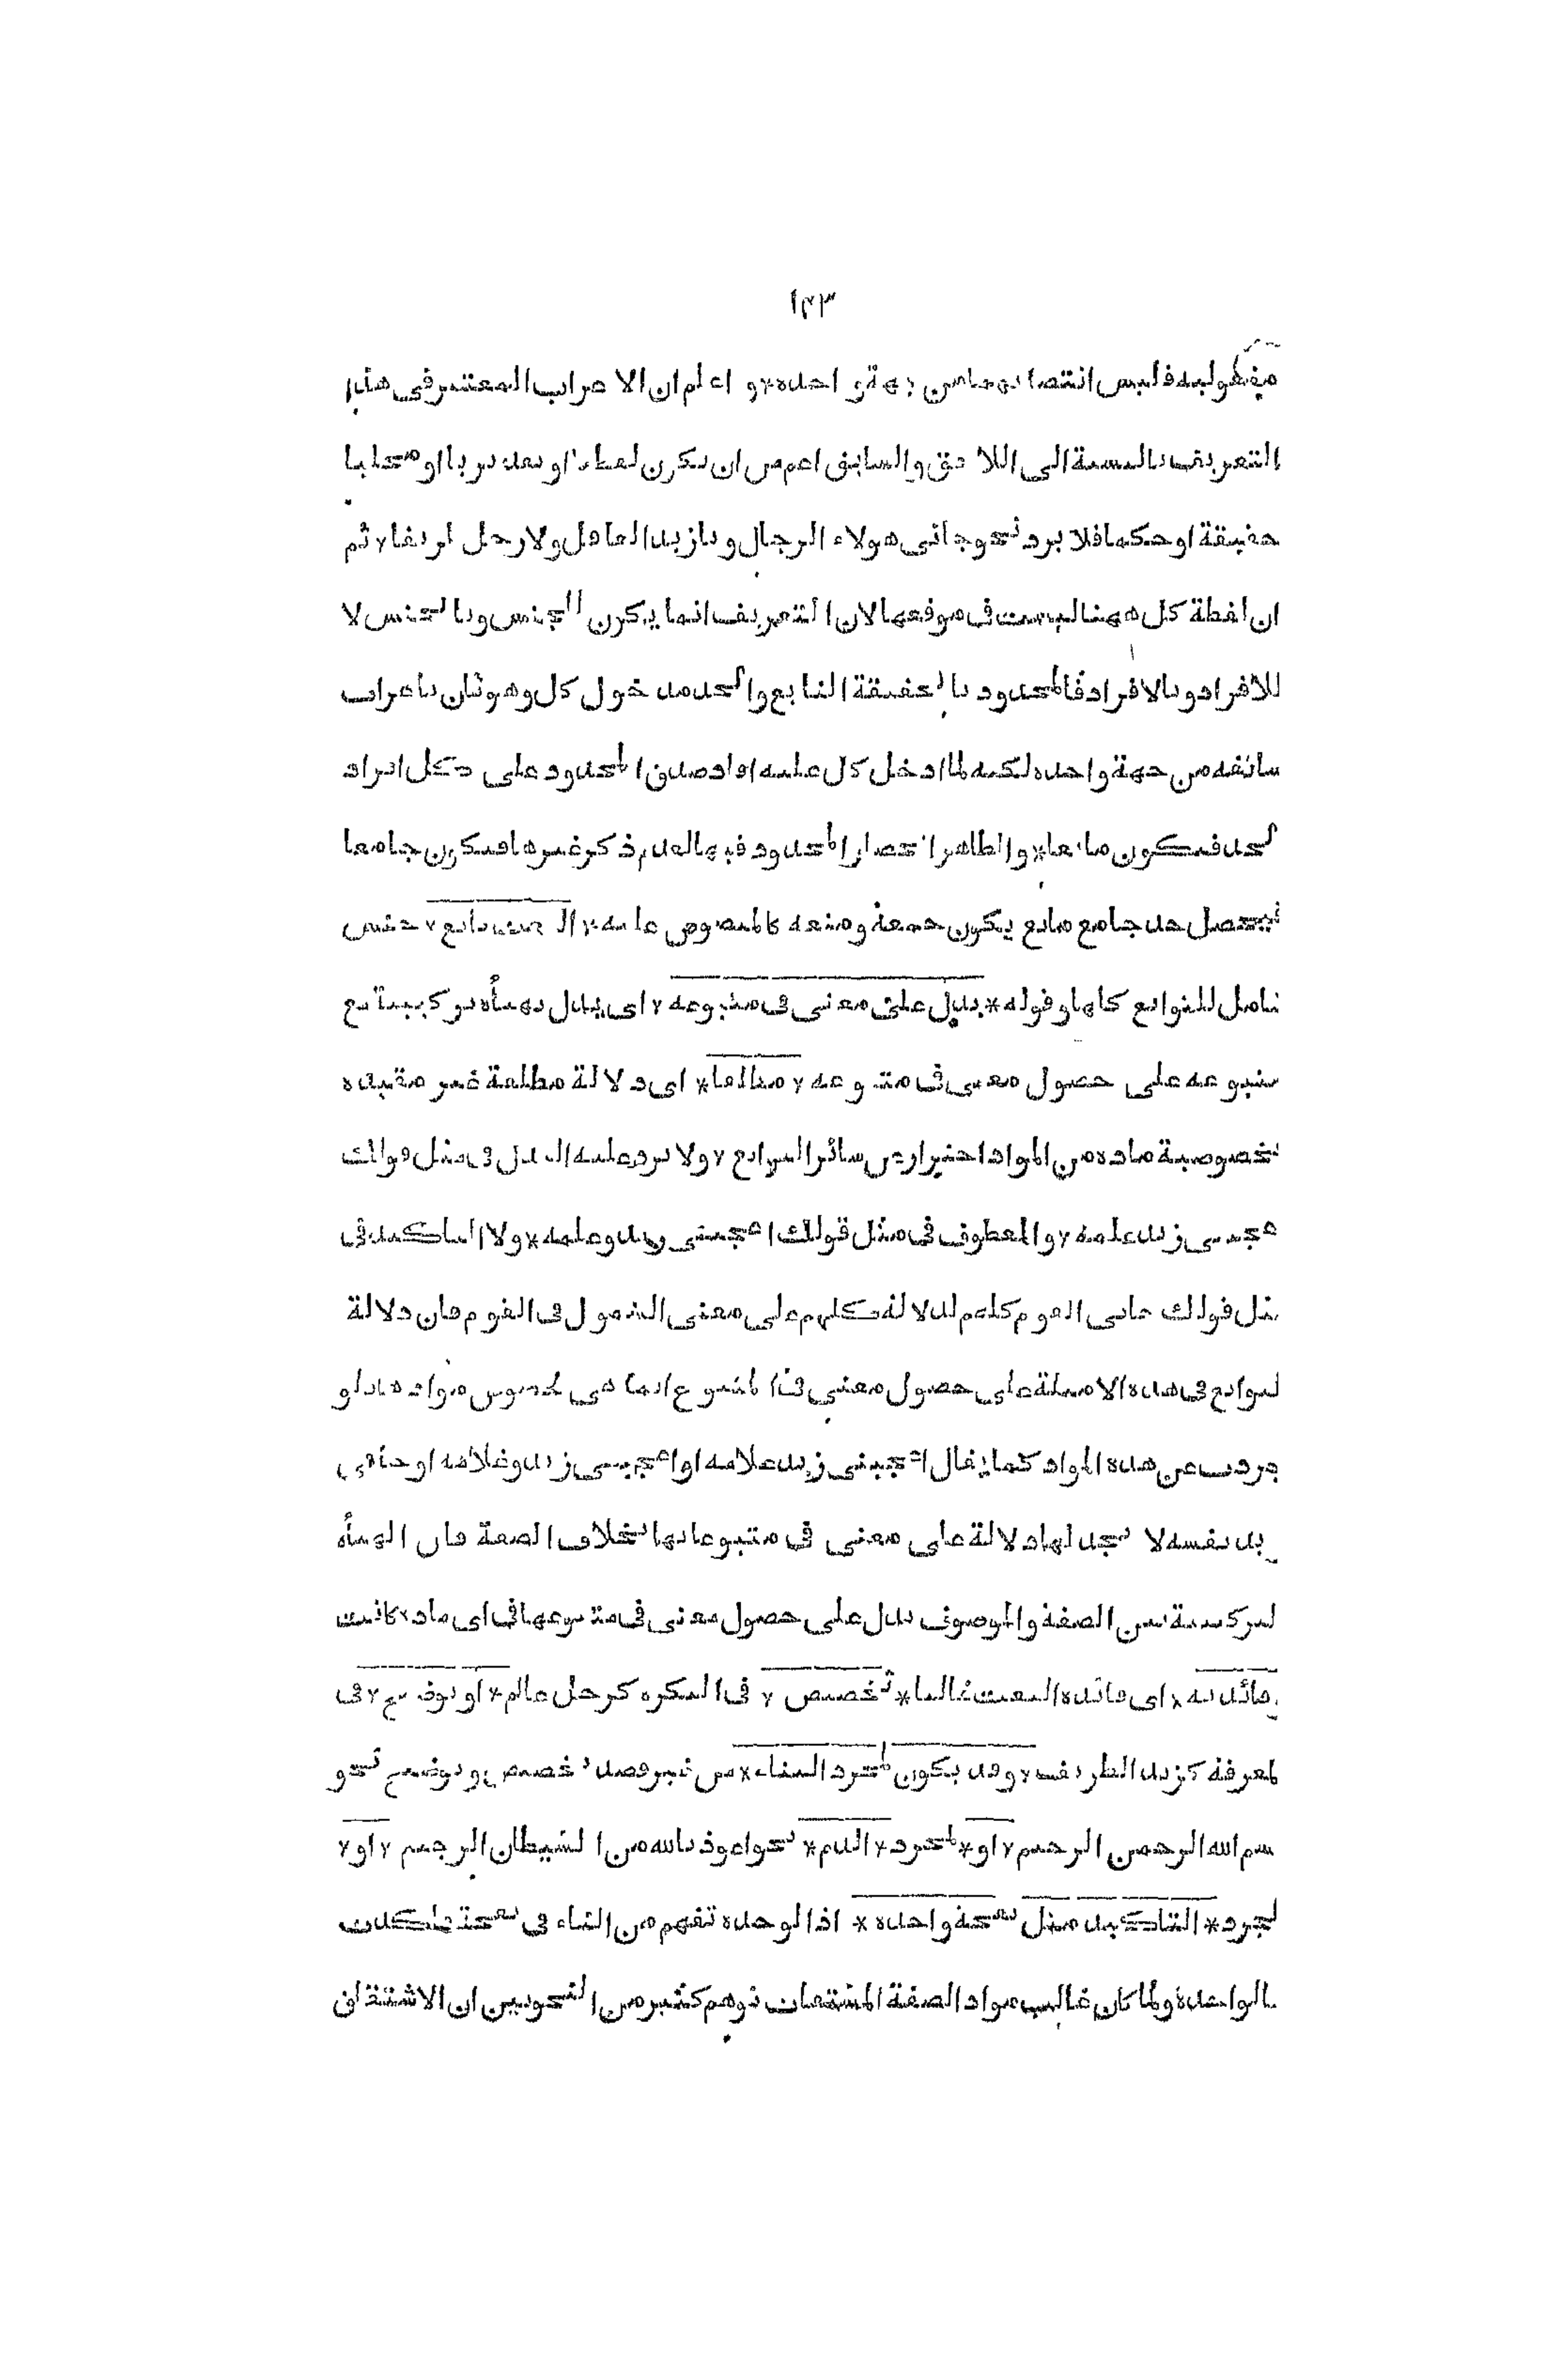 ١٢٣
مفعوليه فليس انتصابهما من جهة واحدة * واعلم ان الاعراب المعتبر في هذا
التعريف بالنسبة الى اللاحق والسابق اعم من ان يكون لفظيا او تقديريا او محليا
حقيقة او حكما فلا يرد نحو جائني هولاء الرجال ويا زيد العاقل ولا رجل ظريفا * ثم
ان لفظة كل ههنا ليست في موقعها لان التعريف انما يكون للجنس وبالجنس لا
للافراد وبالافراد فالمحدود بالحقيقة التابع والحد مدخول كل وهو ثان باعراب
سابقه من جهة واحدة لكنه لما ادخل كل عليه افاد صدق المحدود على كل افراد
لحد فيكون مانعا * والظاهر انحصار المحدود فيها لعدم ذكر غيرها فيكون جامعا
فيحصل حد جامع مانع يكون جمعه ومنعه كالمنصوص عليه * النعت تابع * جنس
شامل للتوابع كلها وقوله * يدل على معنى في متبوعه * اى يدل بهيأة تركيبية مع
متبوعه على حصول معنى في متبوعه * مطلقا * اى دلالة مطلقة غير مقيدة
بخصوصية مادة من المواد احترازعن سائر التوابع * ولا يرد عليه البدل في مثل قولك
عجبني زيد علمه * والمعطوف في مثل قولك اعجبني زيد وعلمه * ولا التاكيد في
مثل قولك جائني القوم كلهم لدلالة كلهم على معنى الشمول في القوم فان دلالة
لتوابع في هذه الامثلة على حصول معنى في المتبوع انما هي لخصوص موادها فلو
جردت عن هذه المواد كما يقال اعجبني زيد غلامه او اعجبني زيد وغلامه او جائني
زيد نفسه لا تجد لها دلالة على معنى في متبوعاتها بخلاف الصفة فان الهيأة
لتركيبية بين الصفة والموصوف تدل على حصول معنى في متبوعها في اى مادة كانت
وفائدته * اى فائدة النعت غالبا * تخصيص * في النكرة كرجل عالم * او توضيح * في
لمعرفة كزيد الظريف * وقد يكون لمجرد الثناء * من غير قصد تخصيص وتوضيح نحو
بسم الله الرحمن الرحيم * او * لمجرد * الذم * نحو اعوذ بالله من الشيطان الرجيم * او *
لمجرد * التاكيد مثل نفخة واحدة * اذ الوحدة تفهم من التاء في نفخة فاكدت
بالواحدة ولما كان غالب مواد الصفة المشتقات توهم كثير من النحويين ان الاشتقاق